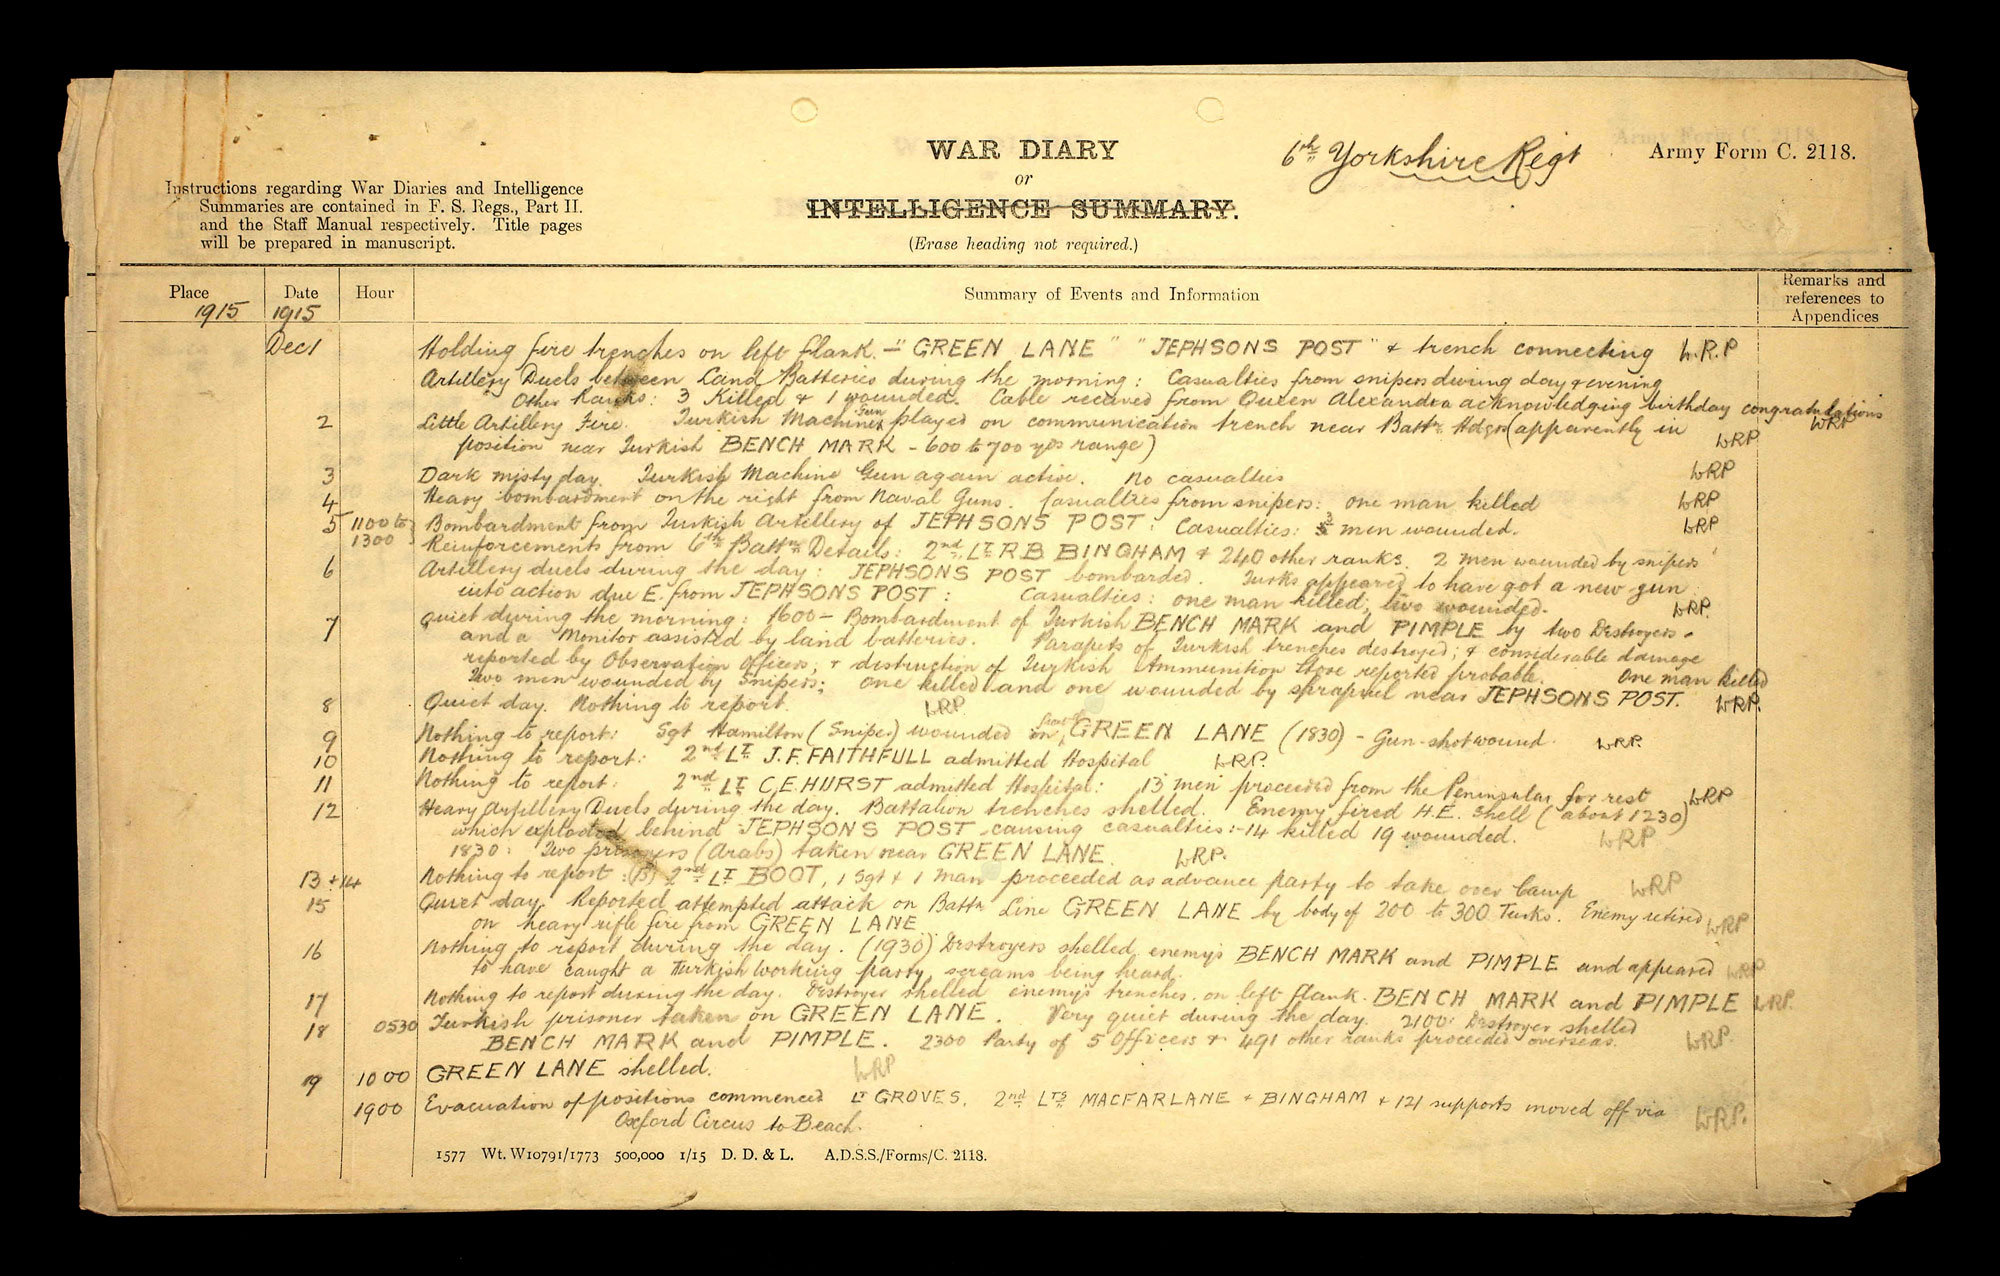 WAR DIARY
or
INTELLIGENCE SUMMARY.
(Erase heading not required.)
6th Yorkshire Regt
Army Form C. 2118.
Instructions regarding War Diaries and Intelligence
Summaries are contained in F. S. Regs., Part II.
and the Staff Manual respectively. Title pages
will be prepared in manuscript.
Place Date Hour Summary of Events and Information Remarks and references to Appendices
1915 1915
Dec 1 Holding fire trenches on left flank. - "GREEN LANE" "JEPHSONS POST" & trench connecting LRP
Artillery Duels between Land Batteries during the morning: Casualties from snipers during day & evening
Other Ranks: 3 Killed & 1 wounded. Cable received from Queen Alexandra acknowledging birthday congratulations LRP
2 Little Artillery Fire. Turkish Machine Gun played on communication trench near Battn Hdqrs (apparently in
position near Turkish BENCH MARK - 600 to 700 yds range) LRP
3 Dark misty day. Turkish Machine Gun again active. No casualties LRP
4 Heavy bombardment on the right from Naval Guns. Casualties from snipers: one man killed LRP
5 1100 to 1300 Bombardment from Turkish Artillery of JEPHSONS POST: Casualties: 3 men wounded. LRP
Reinforcements from 6th Battn Details: 2nd Lt R B BINGHAM & 240 other ranks. 2 men wounded by snipers
6 Artillery duels during the day: JEPHSONS POST bombarded. Turks appeared to have got a new gun
into action due E. from JEPHSONS POST: Casualties: one man killed; two wounded. LRP.
7 Quiet during the morning: 1600 - Bombardment of Turkish BENCH MARK and PIMPLE by two Destroyers
and a Monitor assisted by land batteries. Parapets of Turkish trenches destroyed; & considerable damage
reported by Observation Officers; & destruction of Turkish Ammunition Store reported probable. One man killed
Two men wounded by Snipers; one killed and one wounded by shrapnel near JEPHSONS POST. LRP.
8 Quiet day. Nothing to report. LRP
9 Nothing to report: Sgt Hamilton (Sniper) wounded in front of GREEN LANE (1830) - Gun-shot wound. LRP.
10 Nothing to report: 2nd Lt J.F. FAITHFULL admitted Hospital LRP.
11 Nothing to report: 2nd Lt C.E. HURST admitted Hospital: 13 men proceeded from the Peninsular for rest LRP
12 Heavy Artillery Duels during the day. Battalion trenches shelled. Enemy fired H.E. Shell (about 1230)
which exploded behind JEPHSONS POST causing casualties:- 14 killed 19 wounded. LRP
1830: Two prisoners (Arabs) taken near GREEN LANE. LRP.
13 + 14 Nothing to report: (13) 2nd Lt BOOT, 1 Sgt & 1 Man proceeded as advance party to take over Camp LRP
15 Quiet day. Reported attempted attack on Battn Line GREEN LANE by body of 200 to 300 Turks. Enemy retired
on heavy rifle fire from GREEN LANE. LRP
16 Nothing to report during the day. (1930) Destroyers shelled enemy's BENCH MARK and PIMPLE and appeared
to have caught a Turkish Working party, screams being heard. LRP
17 Nothing to report during the day. Destroyer shelled enemy's trenches on left flank. BENCH MARK and PIMPLE LRP.
18 0530 Turkish prisoner taken on GREEN LANE. Very quiet during the day. 2100: Destroyer shelled
BENCH MARK and PIMPLE. 2300 Party of 5 Officers & 491 other ranks proceeded overseas. LRP.
19 1000 GREEN LANE shelled. LRP
1900 Evacuation of positions commenced Lt GROVES. 2nd Lts MACFARLANE & BINGHAM & 121 supports moved off via
Oxford Circus to Beach. LRP.
1577 Wt. W10791/1773 500,000 1/15 D. D. & L. A.D.S.S./Forms/C. 2118.